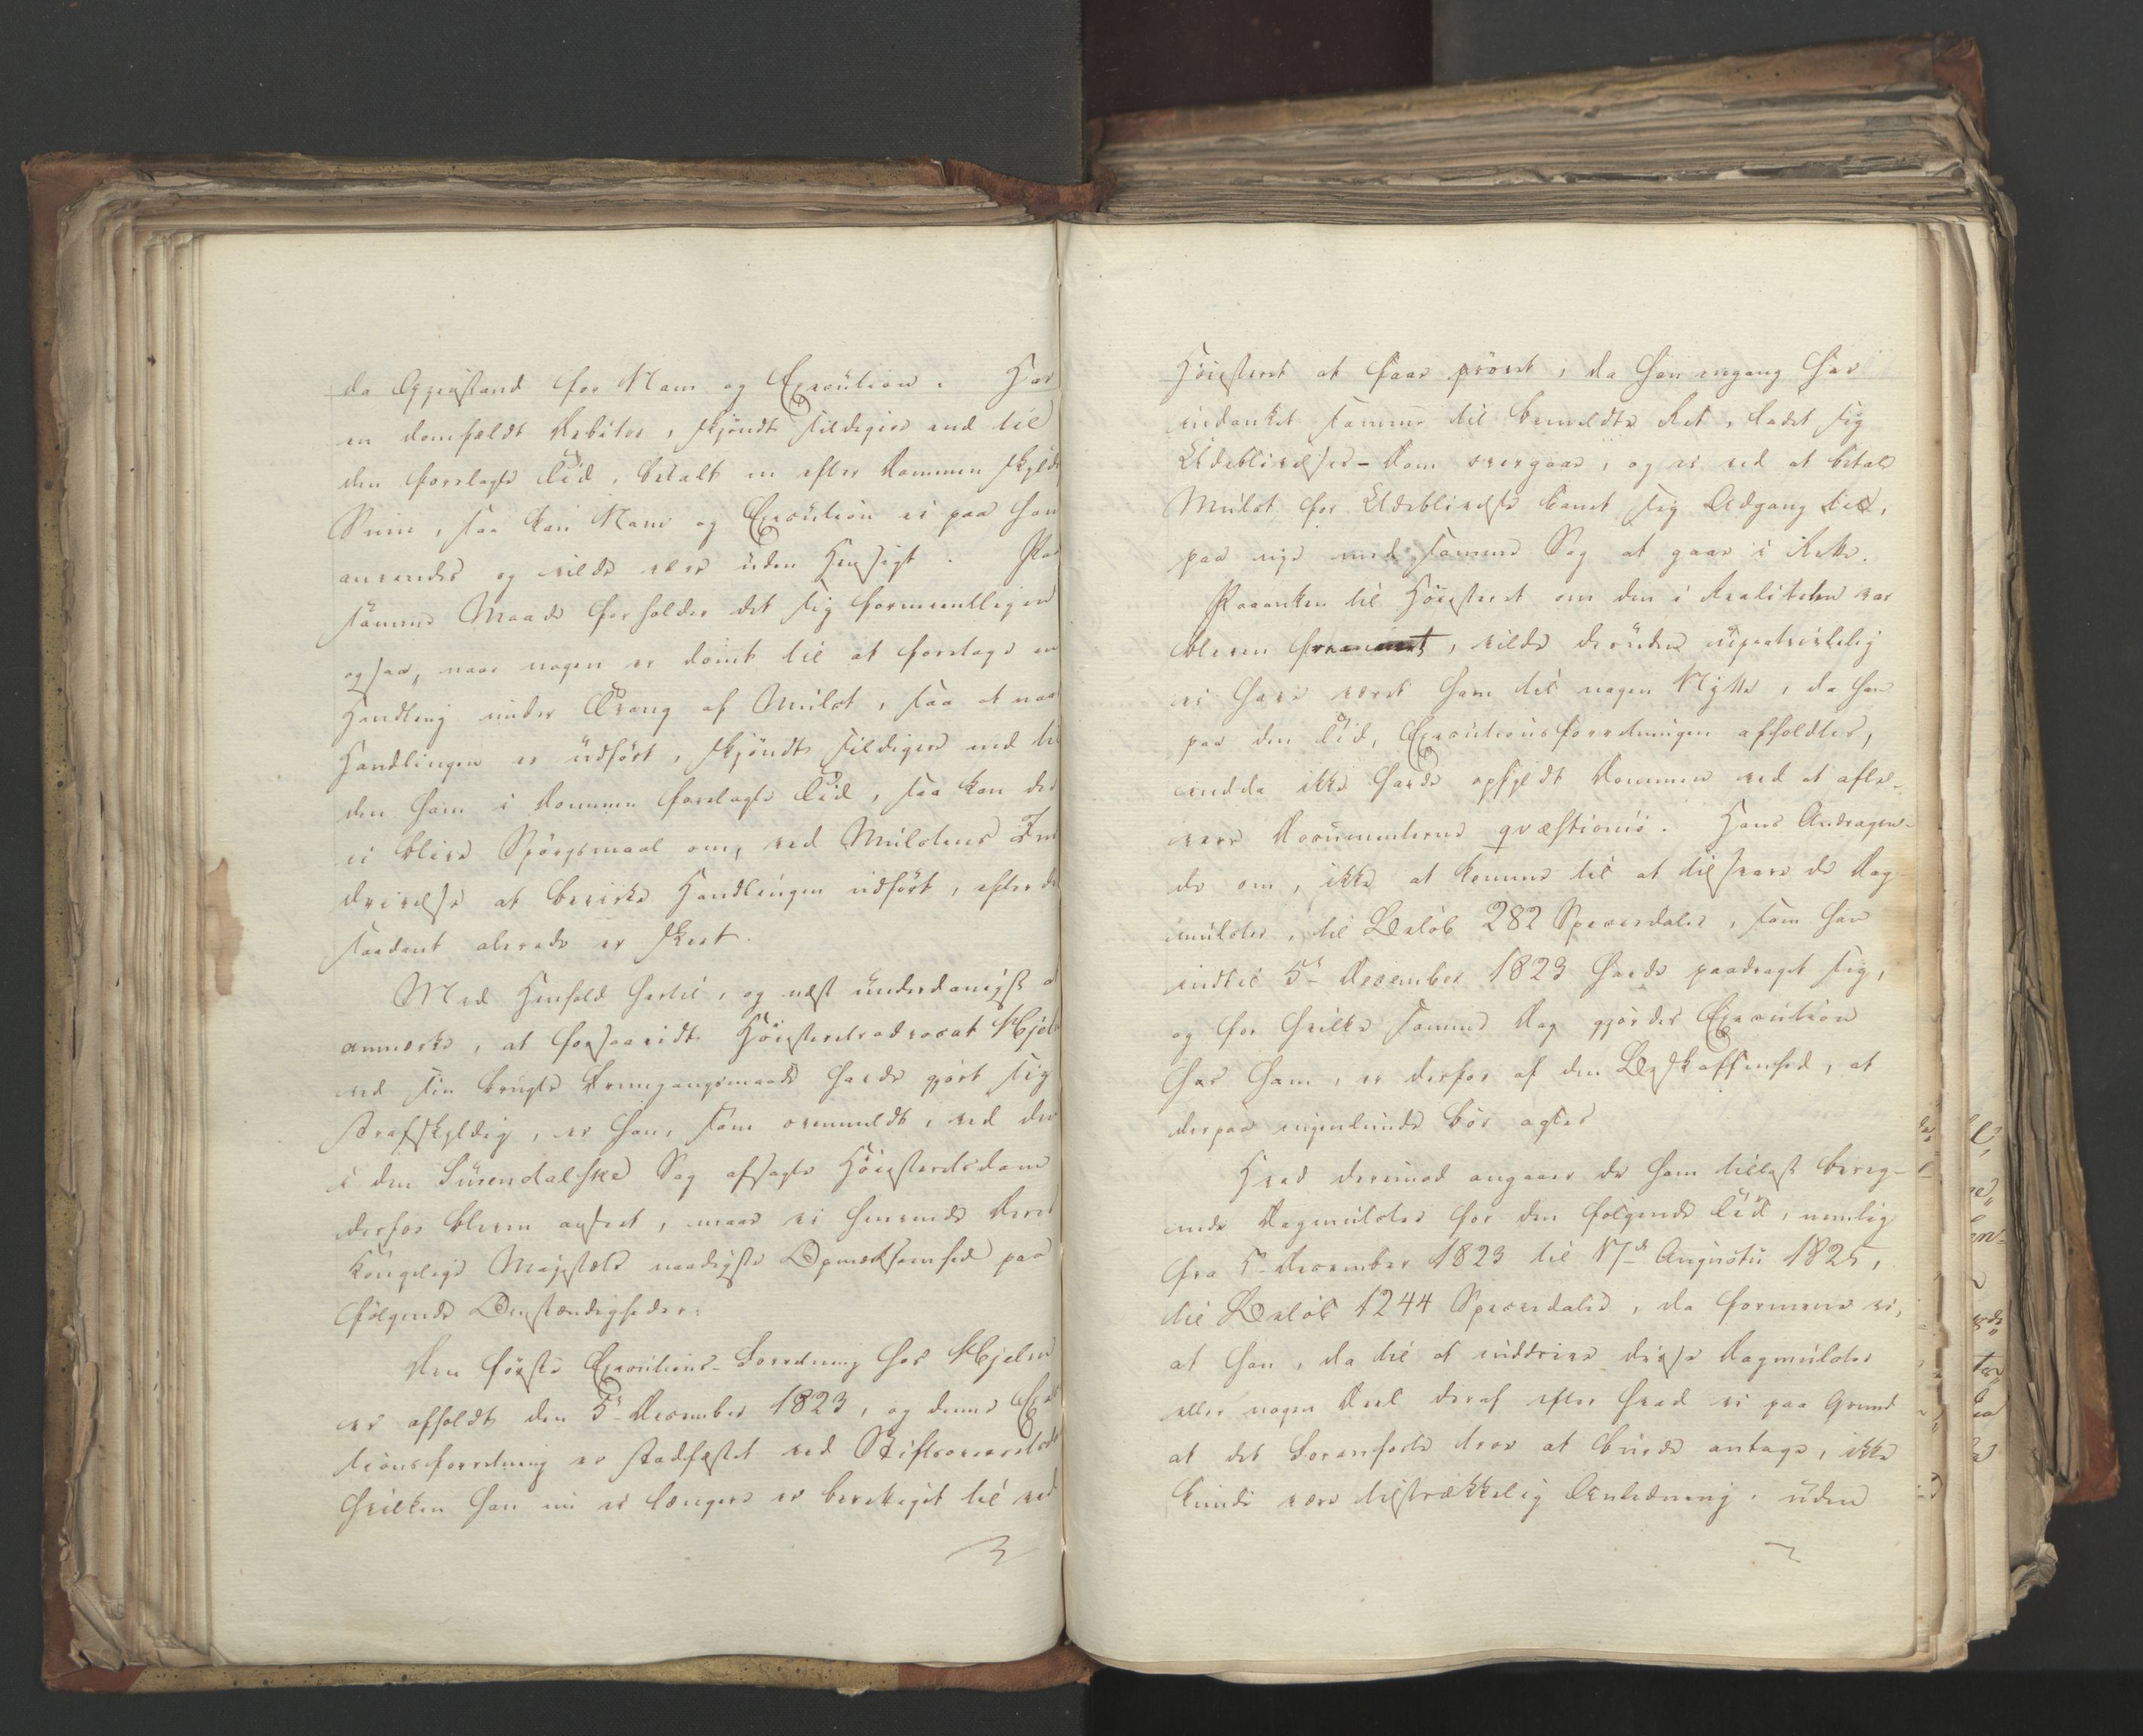 da Gjenstand for Nam og Execution. Har
en domfældt Debitor, skjøndt sildigere end til
den forelagte Tid, betalt en efter Dommen skyldig
Sum, saa kan Nam og Execution ei paa ham
anvendes og vilde være uden Hensigt. Paa
samme Maade forholder det sig formeentligen
ogsaa, naar nogen er dømt til at foretage en
Handling under Tvang af Mulct, saa at naar
Handlingen er udført, skjøndt sildigere end til
den ham i Dommen forelagte Tid, saa kan der
ei blive Spørgsmaal om, ved Mulctens Ind
drivelse at bevirke Handlingen udført, efterdi
saadant alerede er skeet.
Med Henhold hertil, og næst underdanigst a
anmærke, at forsaavidt Høiesteretsadvocat Hjelm
ved sin brugte Fremgangsmaade havde gjort sig
strafskyldig, er han, som ovenmeldt, ved den
i den Surendalske Sag afsagte Høiesteretsdom
derfor bleven anseet, maae vi henvende Deres
Kongelige Majestæts naadigste Opmærksomhed paa
følgende Omstændigheder:
Den første Executions-Forretning hos Hjelm
er afholdt den 5te December 1823, og denne Exe
tionsforretning er stadfæstet ved Stiftsoverrets
hvilken han nu ei længere er berettiget til ved
Høiesteret at faae prøvet, da han engang har
indanket samme til bemeldte Ret, ladet sig
Udeblivelses-Dom overgaae, og ei ved at betale
Mulct for Udeblivelse banet sig Adgang til,
paa nye med samme Sag at gaae i Rette.
Paaanken til Høiesteret om den i Realiteten var
bleven fremmet, vilde desuden upaatvivlelig
ei have været ham til nogen Nytte, da han
paa den Tid, Executionsforretningen afholdtes,
endda ikke havde opfyldt Dommen ved at afle-
vere Documenterne qvæstionis. Hans Andragen-
de om, ikke at komme til at tilsvare de Dag-
mulcter, til Beløb 282 Speciesdaler, som han
indtil 5te December 1823 havde paadraget sig,
og for hvilke samme Dag gjordes Execution
hos ham, er derfor af den Beskaffenhed, at
derpaa ingenlunde bør agtes.
Hvad derimod angaaer de ham tillagt bereg-
nede Dagmulcter for den følgende Tid, nemlig
fra 5te December 1823 til 17de Augusti 1825,
til Beløb 1244 Speciesdaler, da formene vi,
at han, da til at inddrive disse Dagmulcter
eller nogen Deel deraf efter hvad vi paa Grund
af det Foranførte troe at burde antage, ikke
kunde være tilstrækkelig Anledning, uden